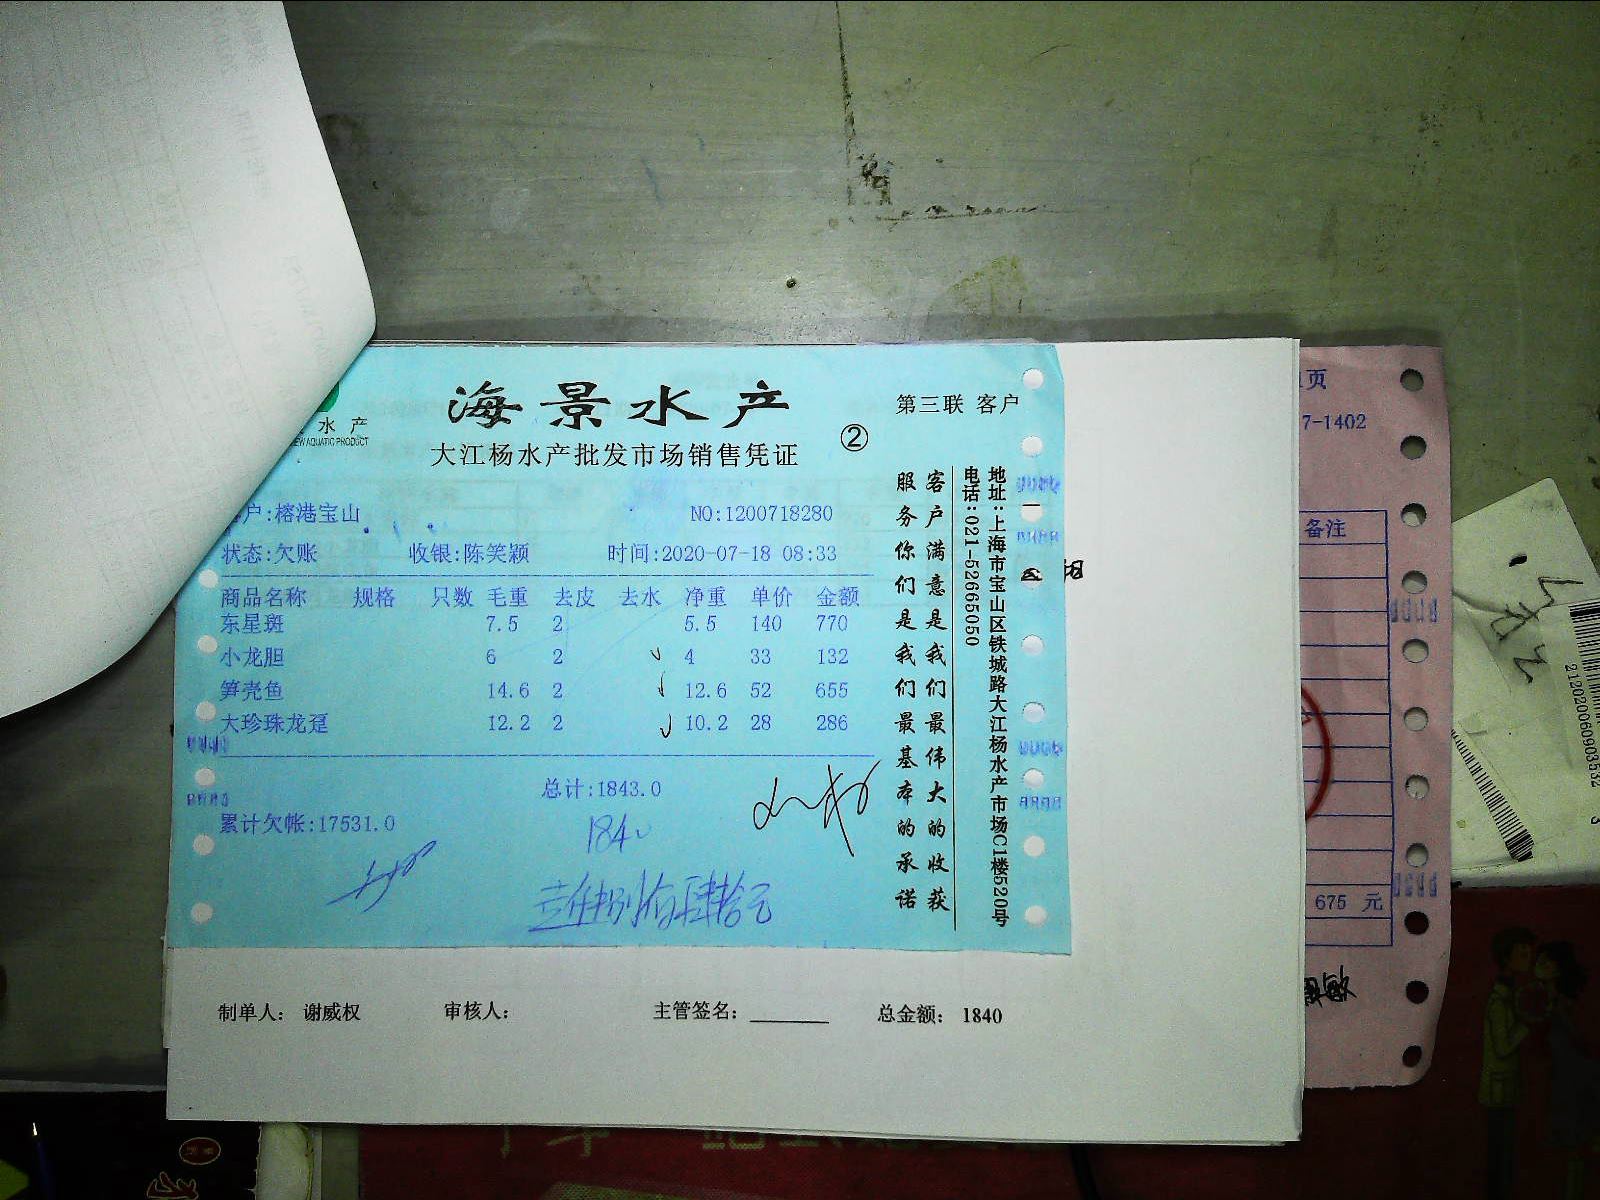 海景水产
大江杨水产批发市场销售凭证
②
第三联 客户
水 产
AQUATIC PRODUCT
户:榕港宝山
NO:1200718280
状态:欠账 收银:陈笑颖 时间:2020-07-18 08:33
商品名称 规格 只数 毛重 去皮 去水 净重 单价 金额
东星斑 7.5 2 5.5 140 770
小龙胆 6 2 4 33 132
笋壳鱼 14.6 2 12.6 52 655
大珍珠龙趸 12.2 2 10.2 28 286
总计:1843.0
累计欠帐:17531.0
1840
壹仟捌佰肆拾元
客户满意是我们最伟大的收获
服务你们是我们最基本的承诺
地址:上海市宝山区铁城路大江杨水产市场C1楼520号
电话:021-52665050
制单人: 谢威权 审核人: 主管签名: 总金额: 1840
页
7-1402
备注
675 元
212020060903532